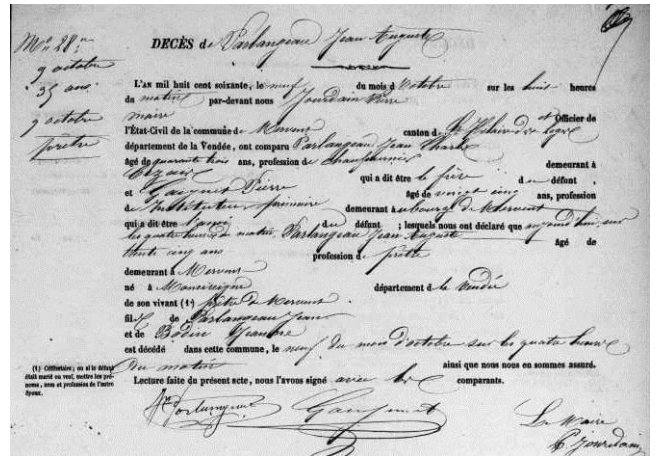 Mo 28
9 octobre
35 ans
9 octobre
prêtre
DÉCÈS de Parlangeau Jean Auguste
L'AN mil huit cent soixante, le neuf du mois d'octobre sur les huit heures
du matin par-devant nous Jourdain Pierre
maire et Officier de
l'État-Civil de la commune de Mervent canton de St Hilaire
département de la Vendée, ont comparu Parlangeau Jean Charles
âgé de quarante trois ans, profession de chaufournier demeurant à
qui a dit être le frère du défunt,
et Pierre âgé de vingt cinq ans, profession
de Instituteur primaire demeurant au bourg de Mervent
qui a dit être l'ami du défunt ; lesquels nous ont déclaré que aujourd'hui sur
les quatre heures du matin Parlangeau Jean Auguste âgé de
trente cinq ans profession de prêtre
demeurant à Mervent
né à Monsireigne département de la Vendée
de son vivant (1) prêtre de Mervent
fils de Parlangeau Jean
et de Bodin Jeanne
est décédé dans cette commune, le neuf du mois d'octobre sur les quatre heures
du matin ainsi que nous nous en sommes assuré.
Lecture faite du présent acte, nous l'avons signé avec les comparants.
(1) Célibataire ; ou si le défunt
était marié ou veuf, mettre les pré-
noms, nom et profession de l'autre
époux.
Le Maire
P. Jourdain